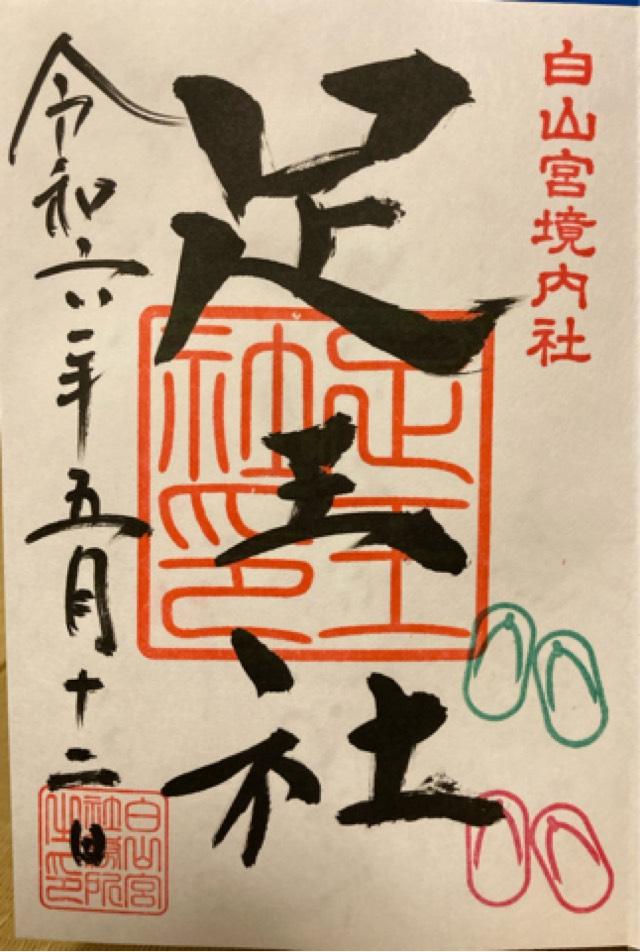 白山宮境内社
足王社
足王社印
令和六年五月十二日
白山宮社務所之印